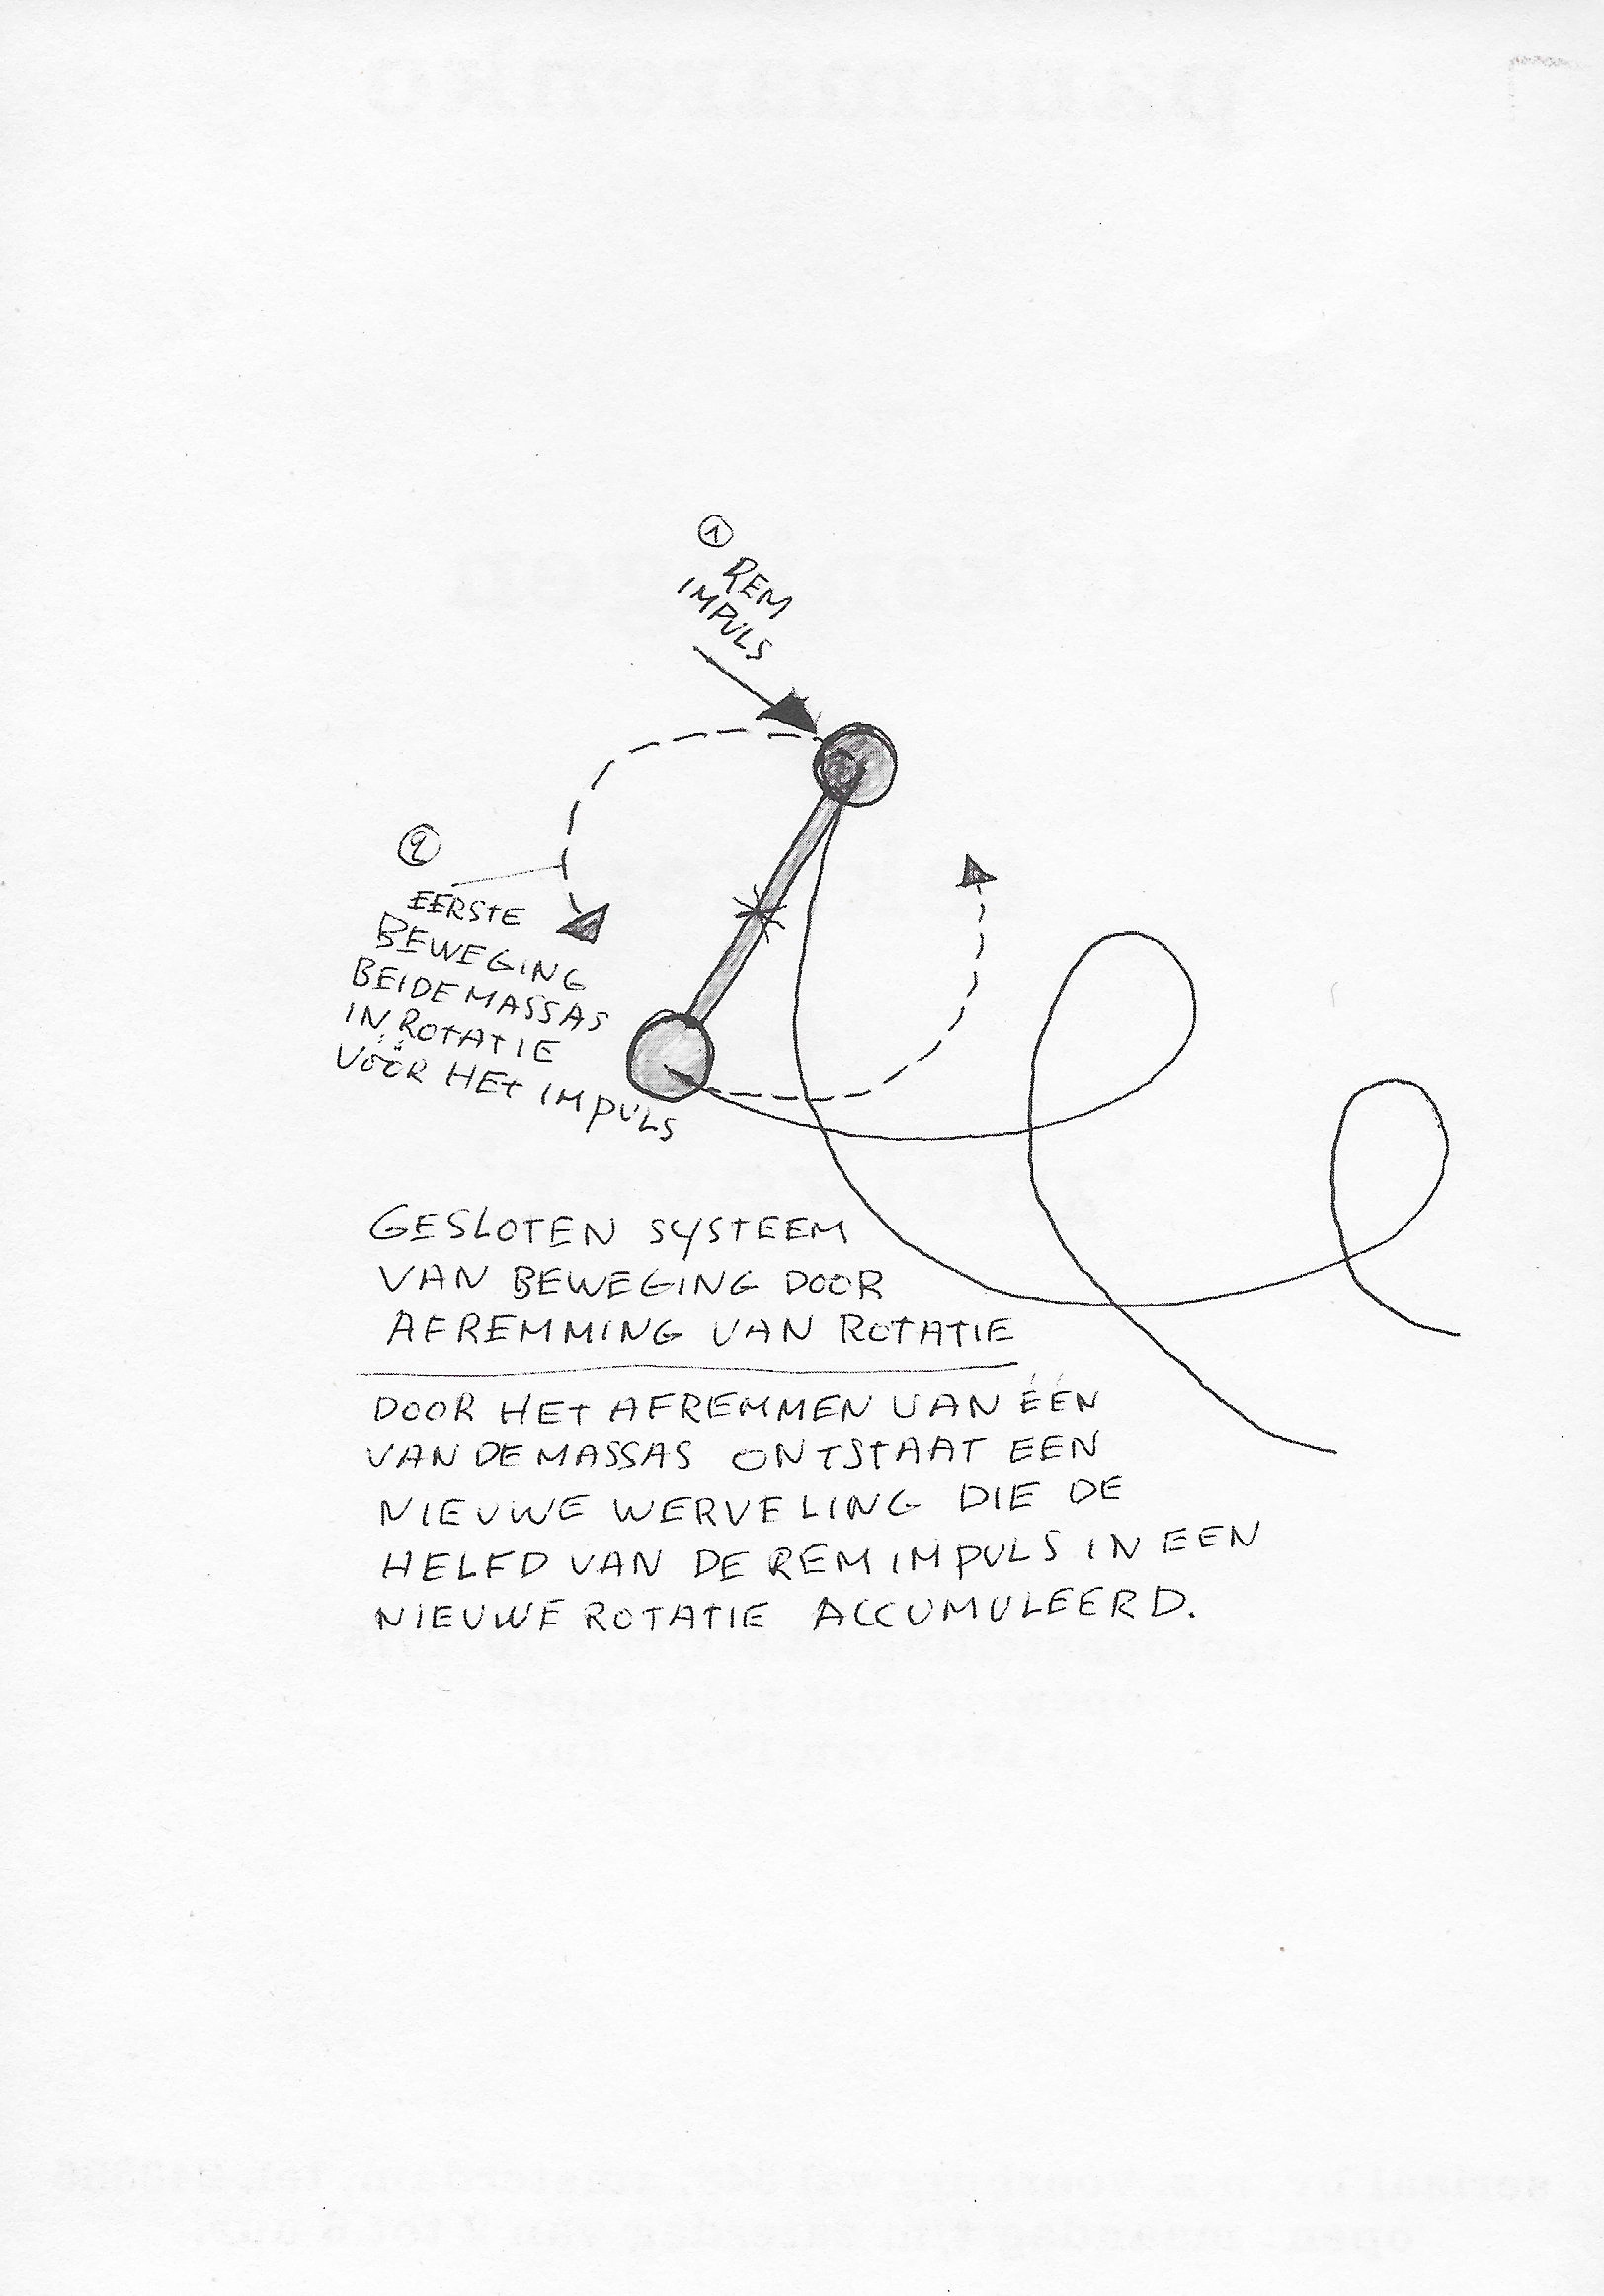 1
REM
IMPULS
2
EERSTE
BEWEGING
BEIDE MASSAS
IN ROTATIE
VÓÓR HET IMPULS
GESLOTEN SYSTEEM
VAN BEWEGING DOOR
AFREMMING VAN ROTATIE
DOOR HET AFREMMEN VAN ÉÉN
VAN DE MASSAS ONTSTAAT EEN
NIEUWE WERVELING DIE DE
HELFD VAN DE REM IMPULS IN EEN
NIEUWE ROTATIE ACCUMULEERD.